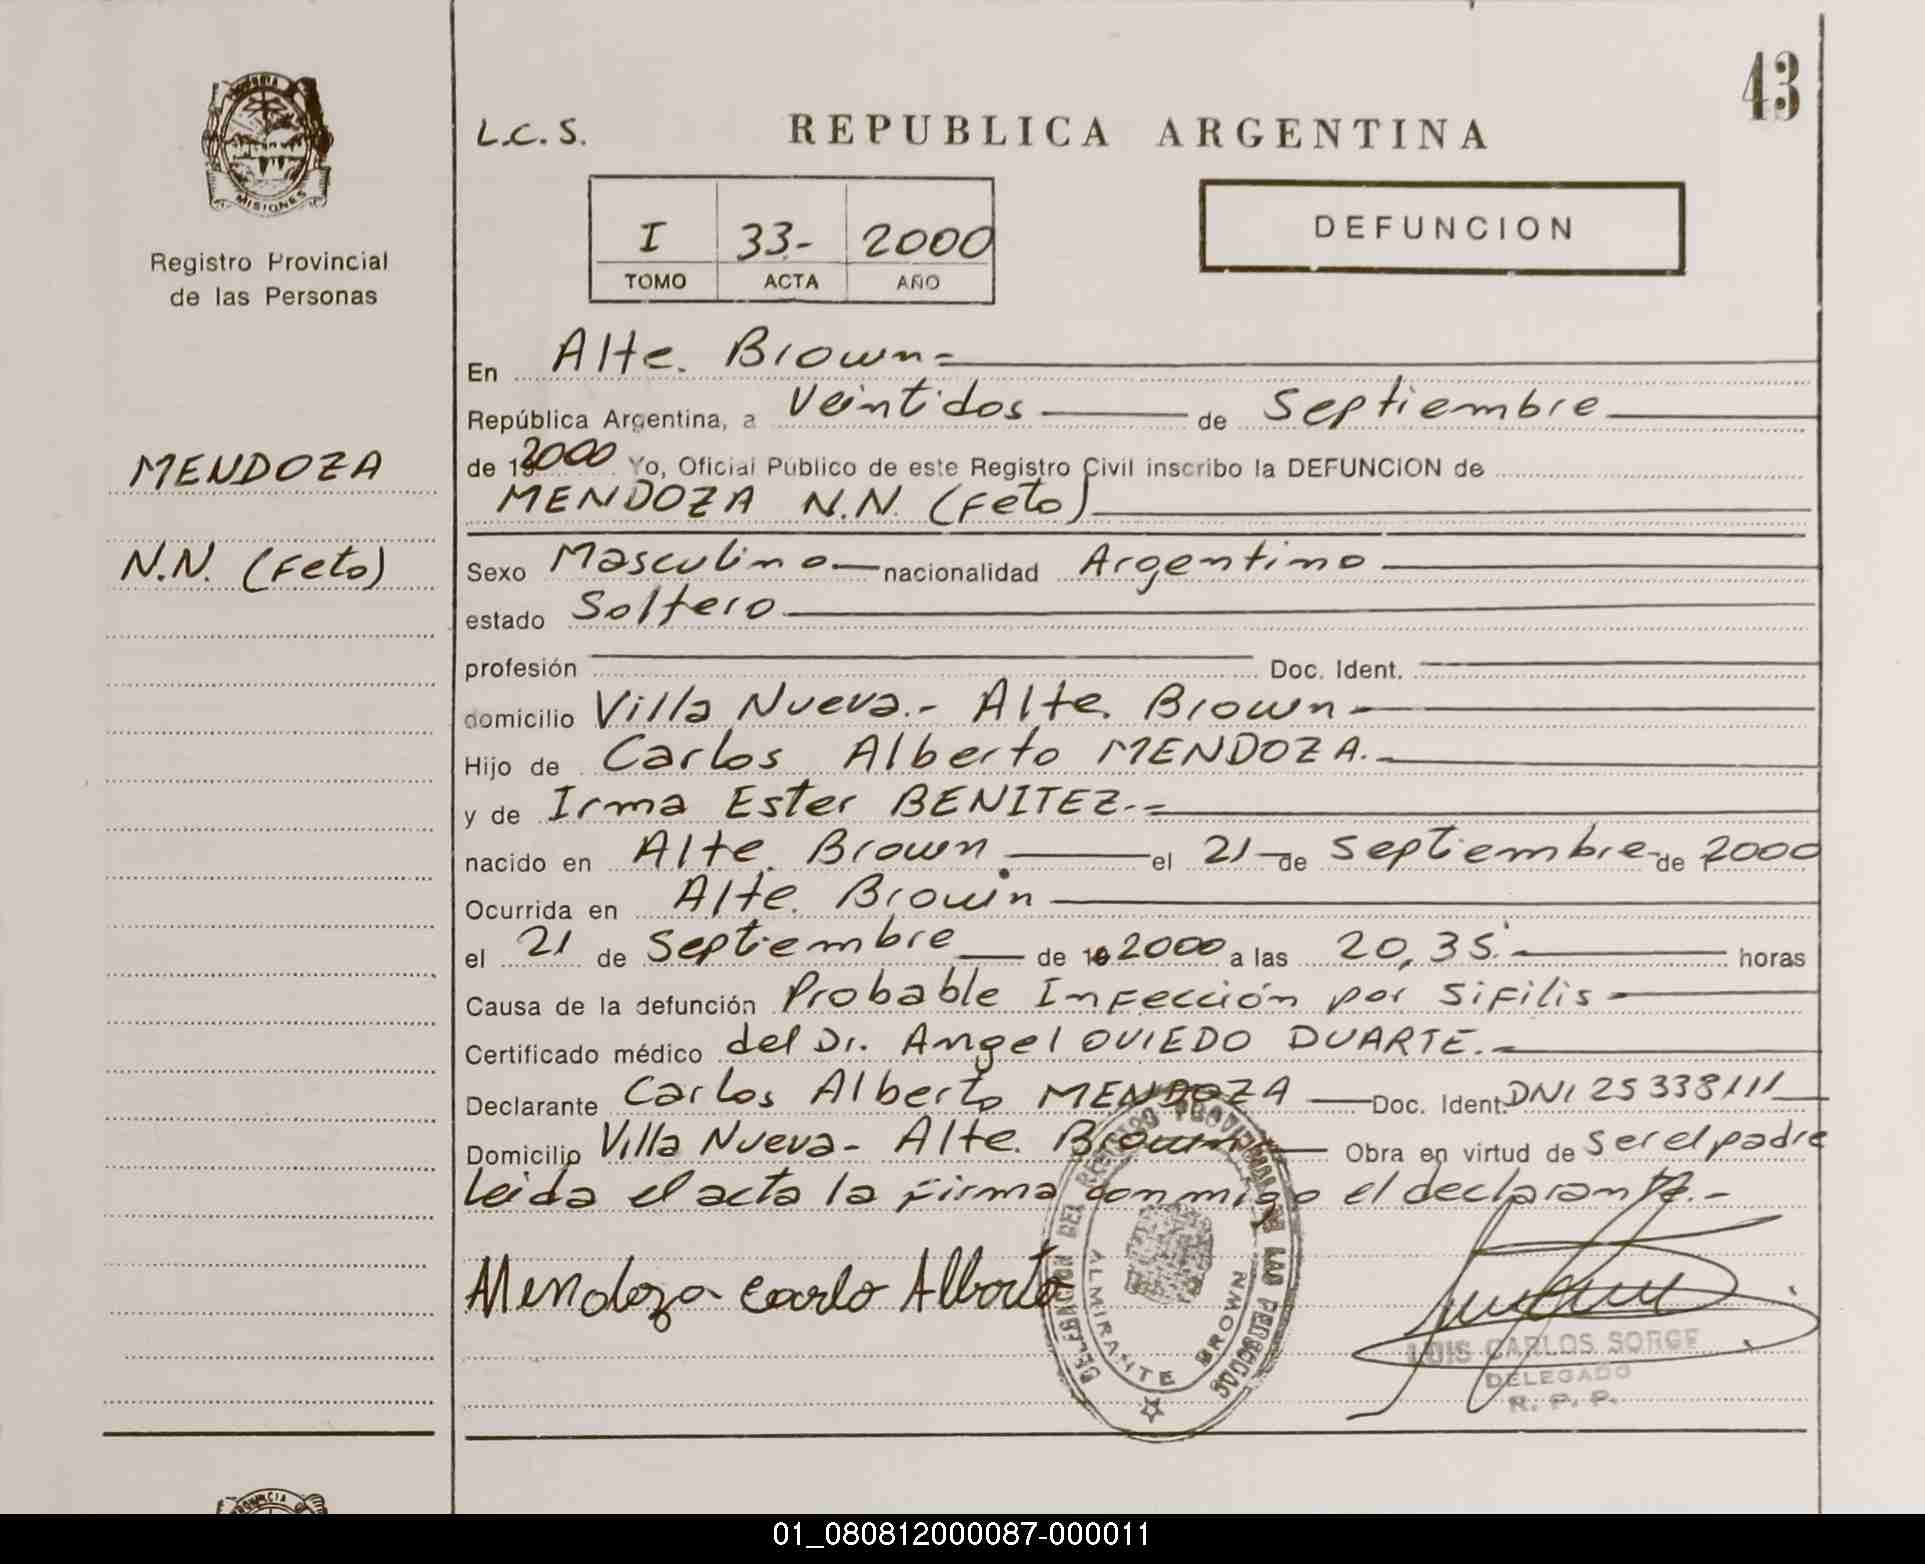 43
PROVINCIA
MISIONES
Registro Provincial
de las Personas
MENDOZA
N.N. (Feto)
L.C.S.
REPUBLICA ARGENTINA
I 33.- 2000
TOMO ACTA AÑO
DEFUNCION
En Alte. Brown=
República Argentina, a Veintidos de Septiembre
de 192000 Yo, Oficial Público de este Registro Civil inscribo la DEFUNCION de
MENDOZA N.N. (Feto)
Sexo Masculino nacionalidad Argentino
estado Soltero
profesión Doc. Ident.
domicilio Villa Nueva.- Alte. Brown-
Hijo de Carlos Alberto MENDOZA.-
y de Irma Ester BENITEZ.-=
nacido en Alte. Brown el 21 de Septiembre de 2000
Ocurrida en Alte. Brown
el 21 de Septiembre de 192000 a las 20,35 horas
Causa de la defunción Probable Infección por Sifilis
Certificado médico del Dr. Angel OVIEDO DUARTE.-
Declarante Carlos Alberto MENDOZA Doc. Ident. DNI 25338111
Domicilio Villa Nueva- Alte. Brown Obra en virtud de Ser el padre
Leida el acta la firma conmigo el declarante.-
Mendoza Carlo Alberto
DELEGACION DEL REGISTRO PROVINCIAL DE LAS PERSONAS
ALMIRANTE BROWN
LUIS CARLOS SORGE
DELEGADO
R. P. P.
PROVINCIA
01_080812000087-000011